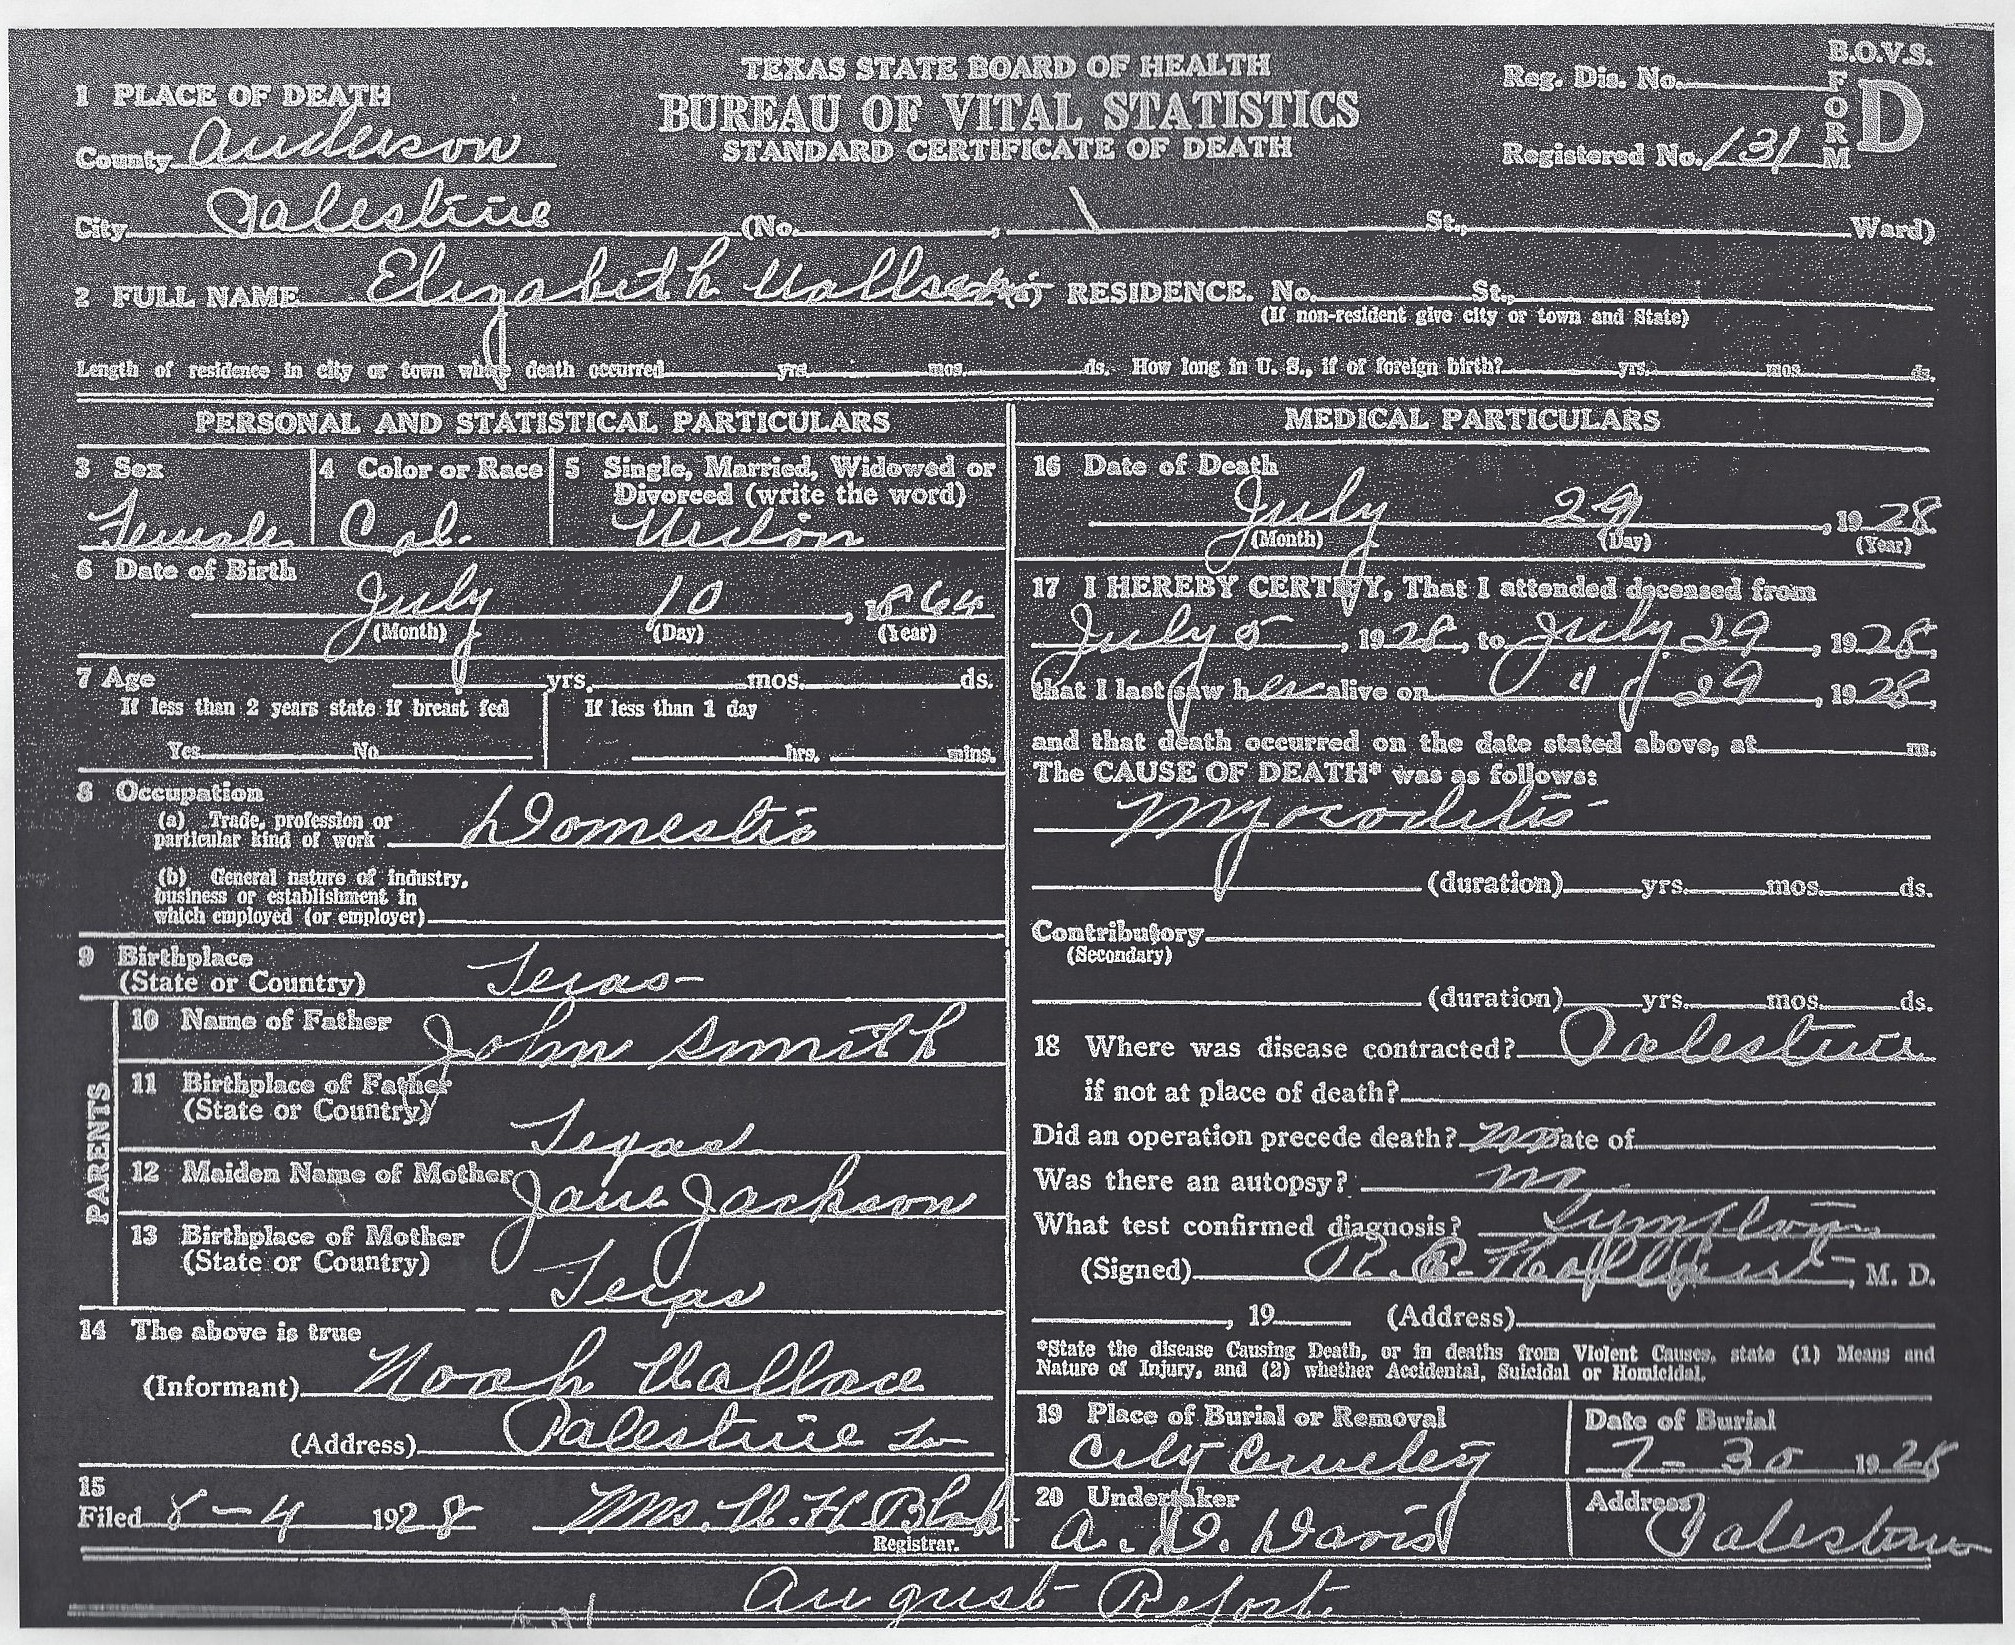 TEXAS STATE BOARD OF HEALTH
BUREAU OF VITAL STATISTICS
STANDARD CERTIFICATE OF DEATH
Reg. Dis. No.
Registered No. 131
B.O.V.S.
FORM D
1 PLACE OF DEATH
County Anderson
City Palestine (No. , St., Ward)
2 FULL NAME Elizabeth (a) RESIDENCE. No. St.,
(If non-resident give city or town and State)
Length of residence in city or town where death occurred yrs. mos. ds. How long in U. S., if of foreign birth? yrs. mos. ds.
PERSONAL AND STATISTICAL PARTICULARS
3 Sex
Female
4 Color or Race
Col.
5 Single, Married, Widowed or
Divorced (write the word)
6 Date of Birth
July 10, 1864
(Month) (Day) (Year)
7 Age yrs. mos. ds.
If less than 2 years state if breast fed
Yes No
If less than 1 day
hrs. mins.
8 Occupation
(a) Trade, profession or
particular kind of work Domestic
(b) General nature of industry,
business or establishment in
which employed (or employer)
9 Birthplace
(State or Country) Texas
PARENTS
10 Name of Father John Smith
11 Birthplace of Father
(State or Country) Texas
12 Maiden Name of Mother Jane Jackson
13 Birthplace of Mother
(State or Country) Texas
14 The above is true
(Informant) Noah Wallace
(Address) Palestine
15
Filed 8-4 1928 Mrs.
Registrar.
MEDICAL PARTICULARS
16 Date of Death
July 29, 1928
(Month) (Day) (Year)
17 I HEREBY CERTIFY, That I attended deceased from
July 5, 1928, to July 29, 1928,
that I last saw her alive on " 29, 1928,
and that death occurred on the date stated above, at m.
The CAUSE OF DEATH* was as follows:
(duration) yrs. mos. ds.
Contributory
(Secondary)
(duration) yrs. mos. ds.
18 Where was disease contracted? Palestine
if not at place of death?
Did an operation precede death? no Date of
Was there an autopsy? no
What test confirmed diagnosis?
(Signed) M. D.
, 19 (Address)
*State the disease Causing Death, or in deaths from Violent Causes, state (1) Means and
Nature of Injury, and (2) whether Accidental, Suicidal or Homicidal.
19 Place of Burial or Removal
City Cemetery
Date of Burial
7-30 1928
20 Undertaker
Davis
Address
Palestine
August Report.